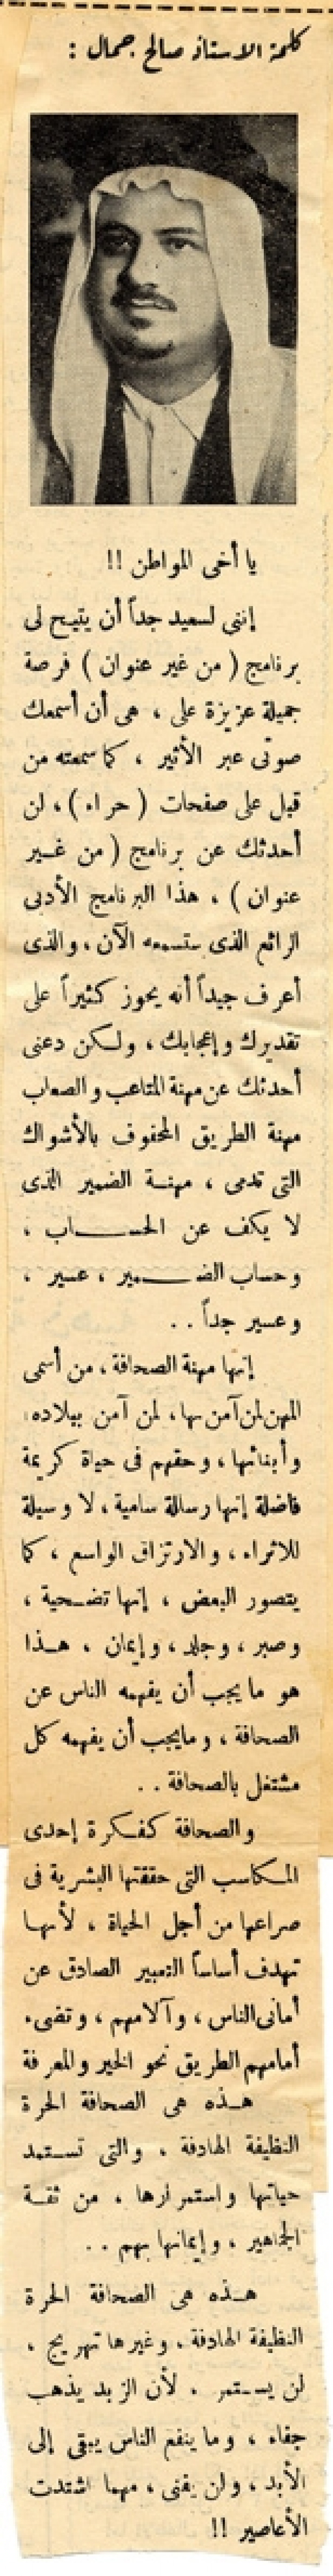 كلمة الاستاذ صالح جمال :
يا أخى المواطن !!
إننى لسعيد جداً أن يتيح لى
برنامج ( من غير عنوان ) فرصة
جميلة عزيزة على ، هى أن أسمعك
صوتى عبر الأثير ، كما سمعته من
قبل على صفحات ( حراء ) ، لن
أحدثك عن برنامج ( من غير
عنوان ) ، هذا البرنامج الأدبى
الرائع الذى ستسمعه الآن ، والذى
أعرف جيداً أنه يحوز كثيراً على
تقديرك وإعجابك ، ولكن دعنى
أحدثك عن مهنة المتاعب والصعاب
مهنة الطريق المحفوف بالأشواك
التى تدمى ، مهنة الضمير الذى
لا يكف عن الحساب ،
وحساب الضمير ، عسير ،
وعسير جداً . .
إنها مهنة الصحافة ، من أسمى
المهن لمن آمن بها ، لمن آمن ببلاده ،
وأبنائها ، وحقهم فى حياة كريمة
فاضلة إنها رسالة سامية ، لا وسيلة
للاثراء ، والارتزاق الواسع ، كما
يتصور البعض ، إنها تضحية ،
وصبر ، وجلد ، وإيمان ، هذا
هو ما يجب أن يفهمه الناس عن
الصحافة ، وما يجب أن يفهمه كل
مشتغل بالصحافة . .
والصحافة كفكرة إحدى
المكاسب التى حققتها البشرية فى
صراعها من أجل الحياة ، لأنها
تهدف أساساً التعبير الصادق عن
أمانى الناس ، وآلامهم ، وتضىء
أمامهم الطريق نحو الخير والمعرفة
هذه هى الصحافة الحرة
النظيفة الهادفة ، والتى تستمد
حياتها واستمرارها ، من ثقة
الجماهير ، وإيمانها بهم . .
هذه هى الصحافة الحرة
النظيفة الهادفة ، وغيرها تهريج ،
لن يستمر ، لأن الزبد يذهب
جفاء ، وما ينفع الناس يبقى إلى
الأبد ، ولن يفنى ، مهما اشتدت
الأعاصير !!